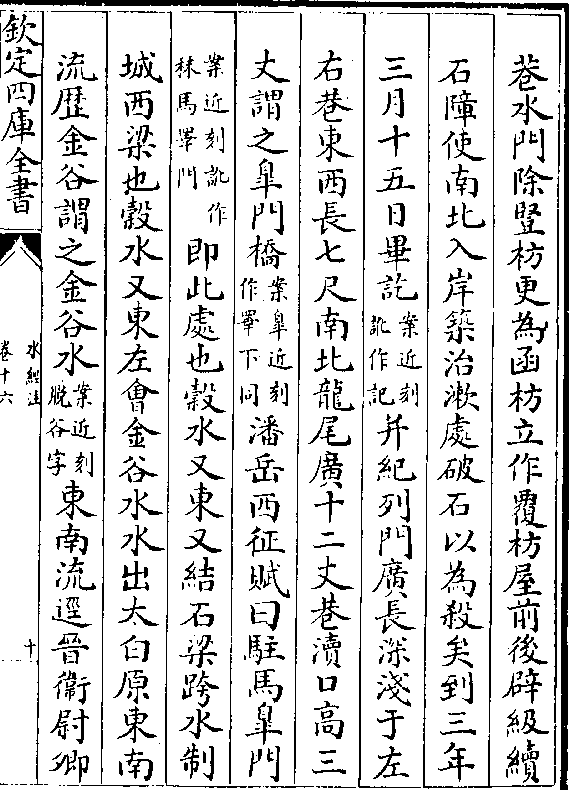 巷水門除豎枋更為函枋立作覆枋屋前後辟級續
石障使南北入岸築治漱處破石以為殺矣到三年
三月十五日畢訖案近刻訛作記并紀列門廣長深淺于左
右巷東西長七尺南北龍尾廣十二丈巷瀆口高三
丈謂之臯門橋案臯近刻作睪下同潘岳西征賦曰駐馬臯門
案近刻訛作秣馬睪門即此處也穀水又東又結石梁跨水制
城西梁也穀水又東左會金谷水水出太白原東南
流歷金谷謂之金谷水案近刻脫谷字東南流逕晉衞尉卿
欽定四庫全書
水經注
卷十六
十